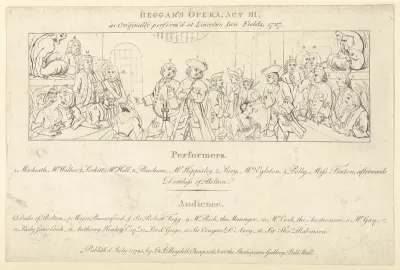 BEGGAR'S OPERA, ACT III,
as Originally perform'd at Lincolns Inn Fields, 1727.
Performers.
1 Macheath, Mr. Walker, 2 Lockitt, Mr. Hall, 3 Peachum, Mr. Hippisley, 4 Lucy, Mrs. Egleton, 5 Polly, Miss Fenton, afterwards
Dutchess of Bolton.
Audience.
6 Duke of Bolton, 7 Major Pauncford, 8 Sir Robert Fagg, 9 Mr. Rich, the Manager, 10 Mr. Cock, the Auctioneer, 11 Mr. Gay,
12 Lady Jane Cook, 13 Anthony Henley Esqr. 14 Lord Gage, 15 Sir Conyers D'Arcy, 16 Sir Thos. Robinson.
Publish'd July 1 1790, by J. & J. Boydell, Cheapside, & at the Shakspeare Gallery, Pall Mall.